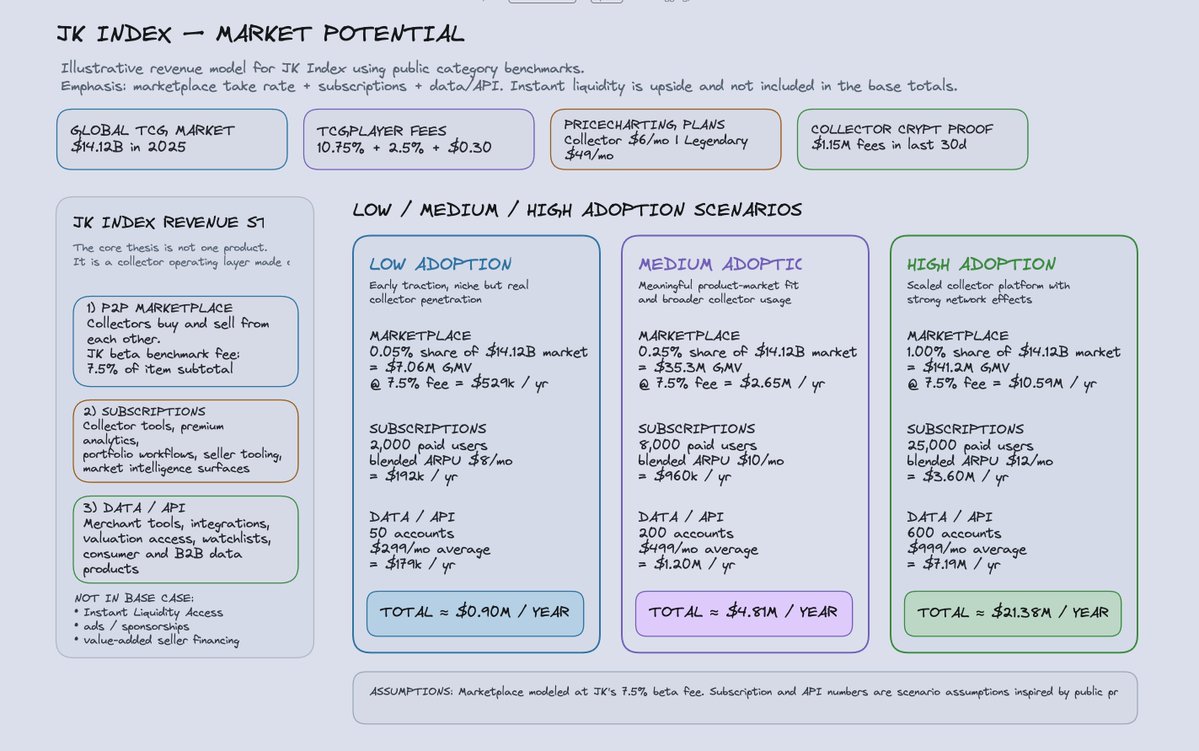 JK INDEX — MARKET POTENTIAL
Illustrative revenue model for JK Index using public category benchmarks.
Emphasis: marketplace take rate + subscriptions + data/API. Instant liquidity is upside and not included in the base totals.
GLOBAL TCG MARKET
$14.12B in 2025
TCGPLAYER FEES
10.75% + 2.5% + $0.30
PRICECHARTING PLANS
Collector $6/mo | Legendary
$49/mo
COLLECTOR CRYPT PROOF
$1.15M fees in last 30d
JK INDEX REVENUE ST
The core thesis is not one product.
It is a collector operating layer made
1) P2P MARKETPLACE
Collectors buy and sell from
each other.
JK beta benchmark fee:
7.5% of item subtotal
2) SUBSCRIPTIONS
Collector tools, premium
analytics,
portfolio workflows, seller tooling,
market intelligence surfaces
3) DATA / API
Merchant tools, integrations,
valuation access, watchlists,
consumer and B2B data
products
NOT IN BASE CASE:
* Instant Liquidity Access
* ads / sponsorships
* value-added seller financing
LOW / MEDIUM / HIGH ADOPTION SCENARIOS
LOW ADOPTION
Early traction, niche but real
collector penetration
MARKETPLACE
0.05% share of $14.12B market
= $7.06M GMV
@ 7.5% fee = $529k / yr
SUBSCRIPTIONS
2,000 paid users
blended ARPU $8/mo
= $192k / yr
DATA / API
50 accounts
$299/mo average
= $179k / yr
TOTAL ≈ $0.90M / YEAR
MEDIUM ADOPTIC
Meaningful product-market fit
and broader collector usage
MARKETPLACE
0.25% share of $14.12B market
= $35.3M GMV
@ 7.5% fee = $2.65M / yr
SUBSCRIPTIONS
8,000 paid users
blended ARPU $10/mo
= $960k / yr
DATA / API
200 accounts
$499/mo average
= $1.20M / yr
TOTAL ≈ $4.81M / YEAR
HIGH ADOPTION
Scaled collector platform with
strong network effects
MARKETPLACE
1.00% share of $14.12B market
= $141.2M GMV
@ 7.5% fee = $10.59M / yr
SUBSCRIPTIONS
25,000 paid users
blended ARPU $12/mo
= $3.60M / yr
DATA / API
600 accounts
$999/mo average
= $7.19M / yr
TOTAL ≈ $21.38M / YEAR
ASSUMPTIONS: Marketplace modeled at JK's 7.5% beta fee. Subscription and API numbers are scenario assumptions inspired by public pr